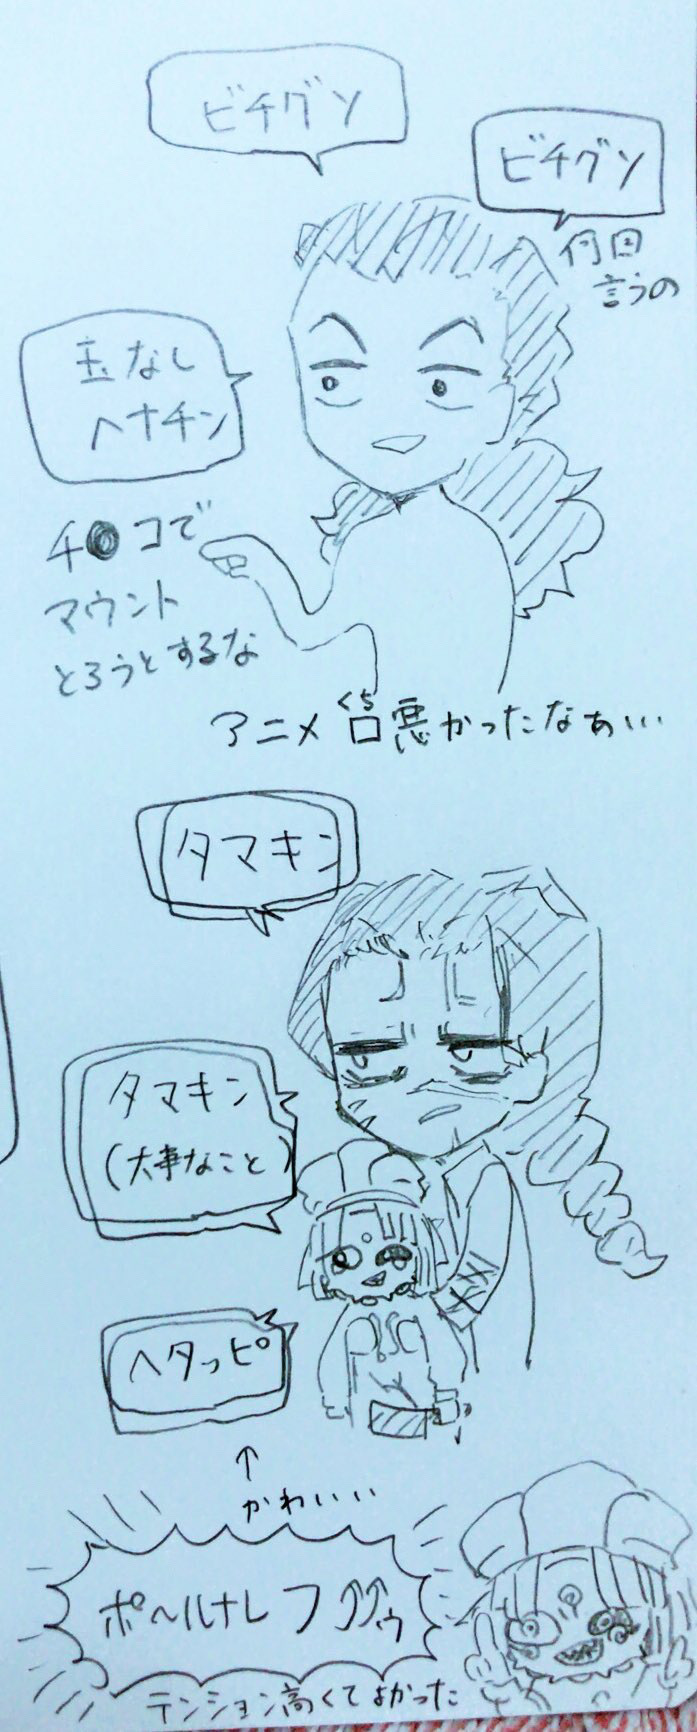 ビチグソ
ビチグソ
何回
言うの
玉なし
ヘナチン
チ●コで
マウント
とろうとするな
くち
アニメ口悪かったなぁぃぃ
タマキン
タマキン
(大事なこと)
ヘタっピ
↑
かわいい
ポ〜ルナレフ⤴⤴ゥ
テンション高くてよかった